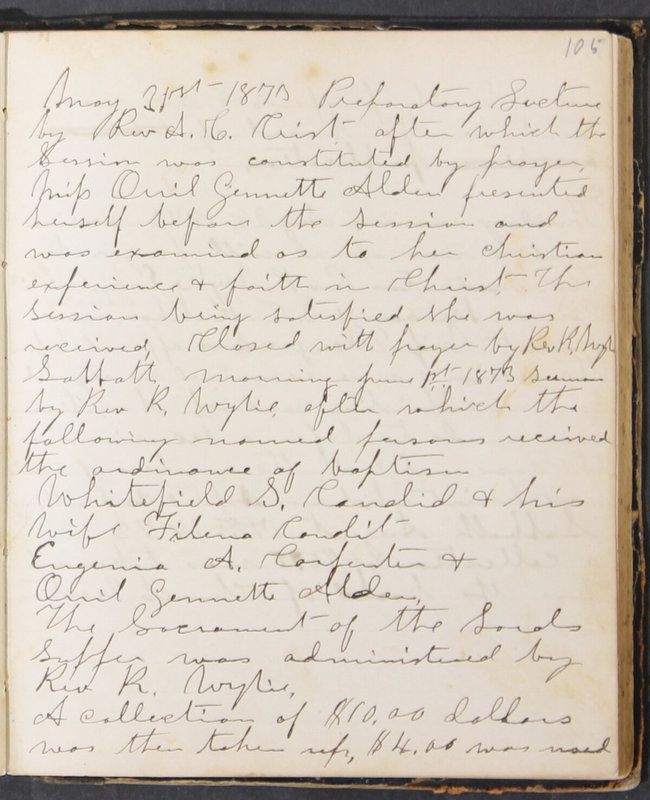 105
May 31st 1873 Preparatory Lecture
by Rev A. C. Crist after which the
Session was constituted by prayer,
Miss Orril Gennette Alden presented
herself before the session and
was examined as to her christian
experience & faith in Christ The
session being satisfied she was
received, Closed with prayer by Rev R. Wylie
Sabbath morning June 1st 1873 Sermon
by Rev R. Wylie, after which the
following named persons received
the ordinance of baptism
Whitefield S. Candid & his
wife Filena Condit
Eugenia A. Carpenter &
Orril Gennette Alden,
The Sacrament of the Lords
Supper was administered by
Rev R. Wylie,
A collection of $10.00 dollars
was then taken up, $4.00 was used